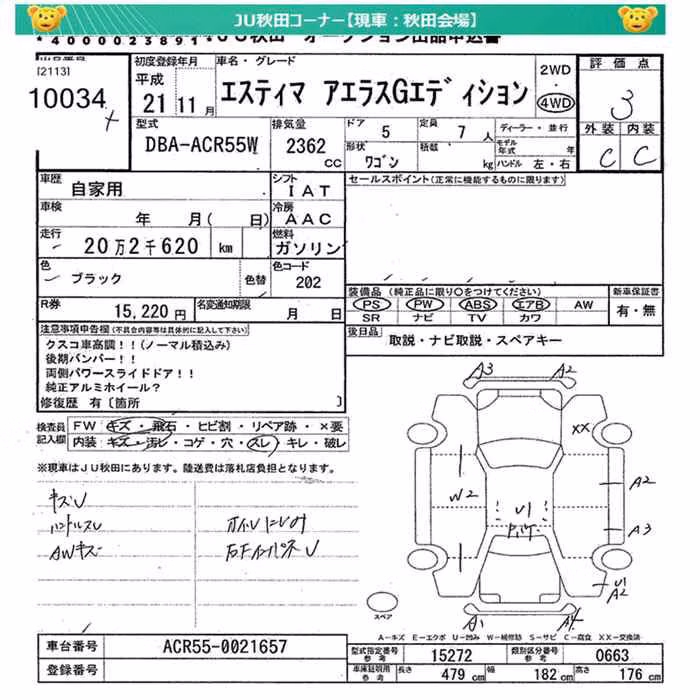 JU秋田コーナー【現車：秋田会場】
*4000023891*JU秋田 オークション出品申込書
[2113]
10034
初度登録年月
平成
21 11月
車名・グレード
エスティマ アエラスGエディション
2WD
・
4WD
評価点
3
外装 内装
C C
型式
DBA-ACR55W
排気量
2362
cc
ドア
5
定員
7 人
ディーラー・並行
形状
ワゴン
積載
kg
モデル年式
年
ハンドル 左・右
車歴
自家用
シフト
IAT
セールスポイント(正常に機能するものに限ります)
車検
年 月( 日)
冷房
AAC
走行
20万2千620 km
燃料
ガソリン
色
ブラック
色替
色コード
202
装備品 (純正品に限り○をつけてください)
新車保証書
PS PW ABS エアB AW
SR ナビ TV カワ
有・無
R券
15,220円
名変通知期限
月 日
後日品
取説・ナビ取説・スペアキー
注意事項申告欄(不具合内容等は具体的に記入して下さい)
クスコ車高調！！(ノーマル積込み)
後期バンパー！！
両側パワースライドドア！！
純正アルミホイール？
修復歴 有〔箇所 〕
検査員記入欄
FW キズ・飛石・ヒビ割・リペア跡・×要
内装 キズ・汚レ・コゲ・穴・スレ・キレ・破レ
※現車はJU秋田にあります。陸送費は落札店負担となります。
キズU
ハンドルスレ
AWキズ
オイルにじみ
A3 A2
XX
A2
W2
U1
A3
U1
A2
A1 A4
スペア
A－キズ E－エクボ U－凹み W－補修跡 S－サビ C－腐食 XX－交換済
車台番号
ACR55-0021657
型式指定番号
参考
15272
類別区分番号
参考
0663
登録番号
車庫証明用
参考
長さ
479 cm
幅
182 cm
高さ
176 cm